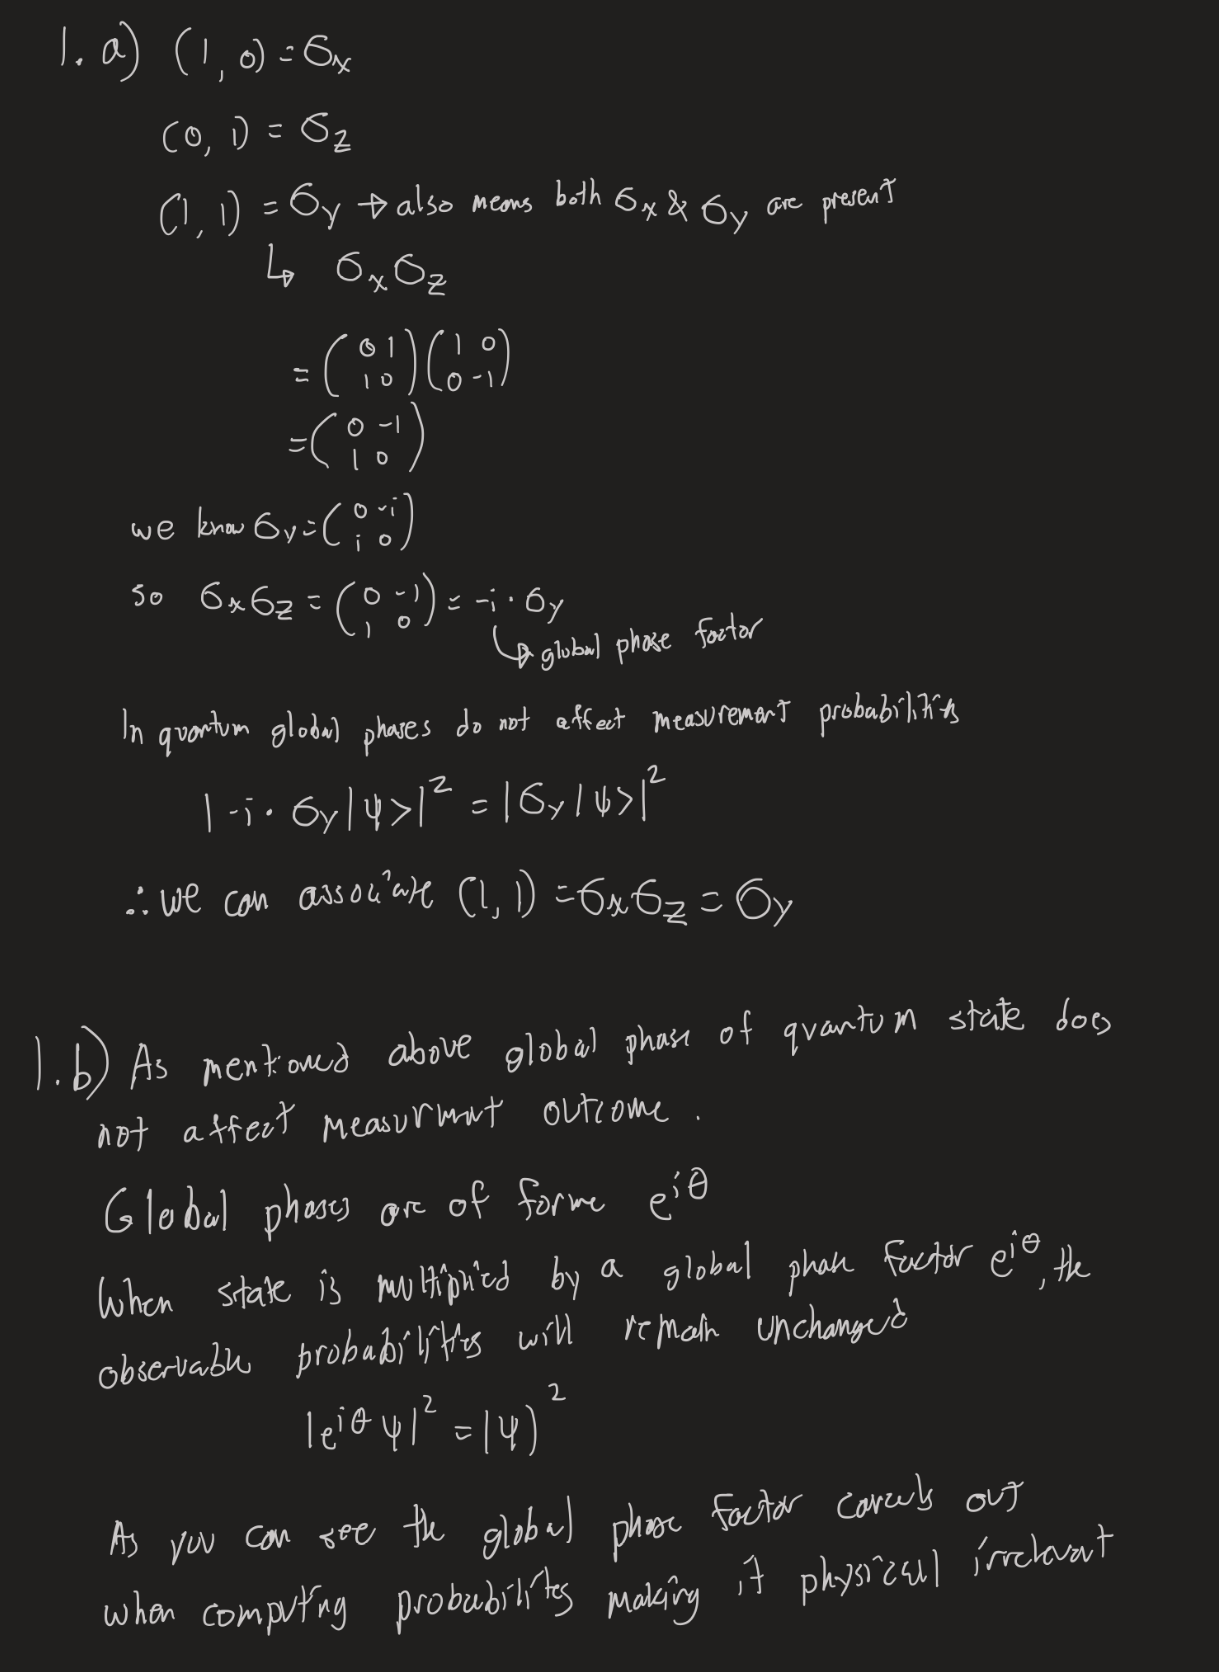 1. a) (1, 0) = σx
(0, 1) = σz
(1, 1) = σy → also means both σx & σy are present
↳ σxσz
= (0 1; 1 0)(1 0; 0 -1)
= (0 -1; 1 0)
we know σy = (0 -i; i 0)
so σxσz = (0 -1; 1 0) = -i · σy
↳ global phase factor
In quantum global phases do not affect measurement probabilities
|-i · σy|ψ>|² = |σy|ψ>|²
∴ we can associate (1, 1) = σxσz = σy
1.b) As mentioned above global phase of quantum state does
not affect measurment outcome.
Global phases are of forme e^iθ
When state is multiplied by a global phase factor e^iθ, the
observable probabilities will remain unchanged
|e^iθ ψ|² = |ψ)²
As you can see the global phase factor cancels out
when computing probabilites making it physical irrelevant